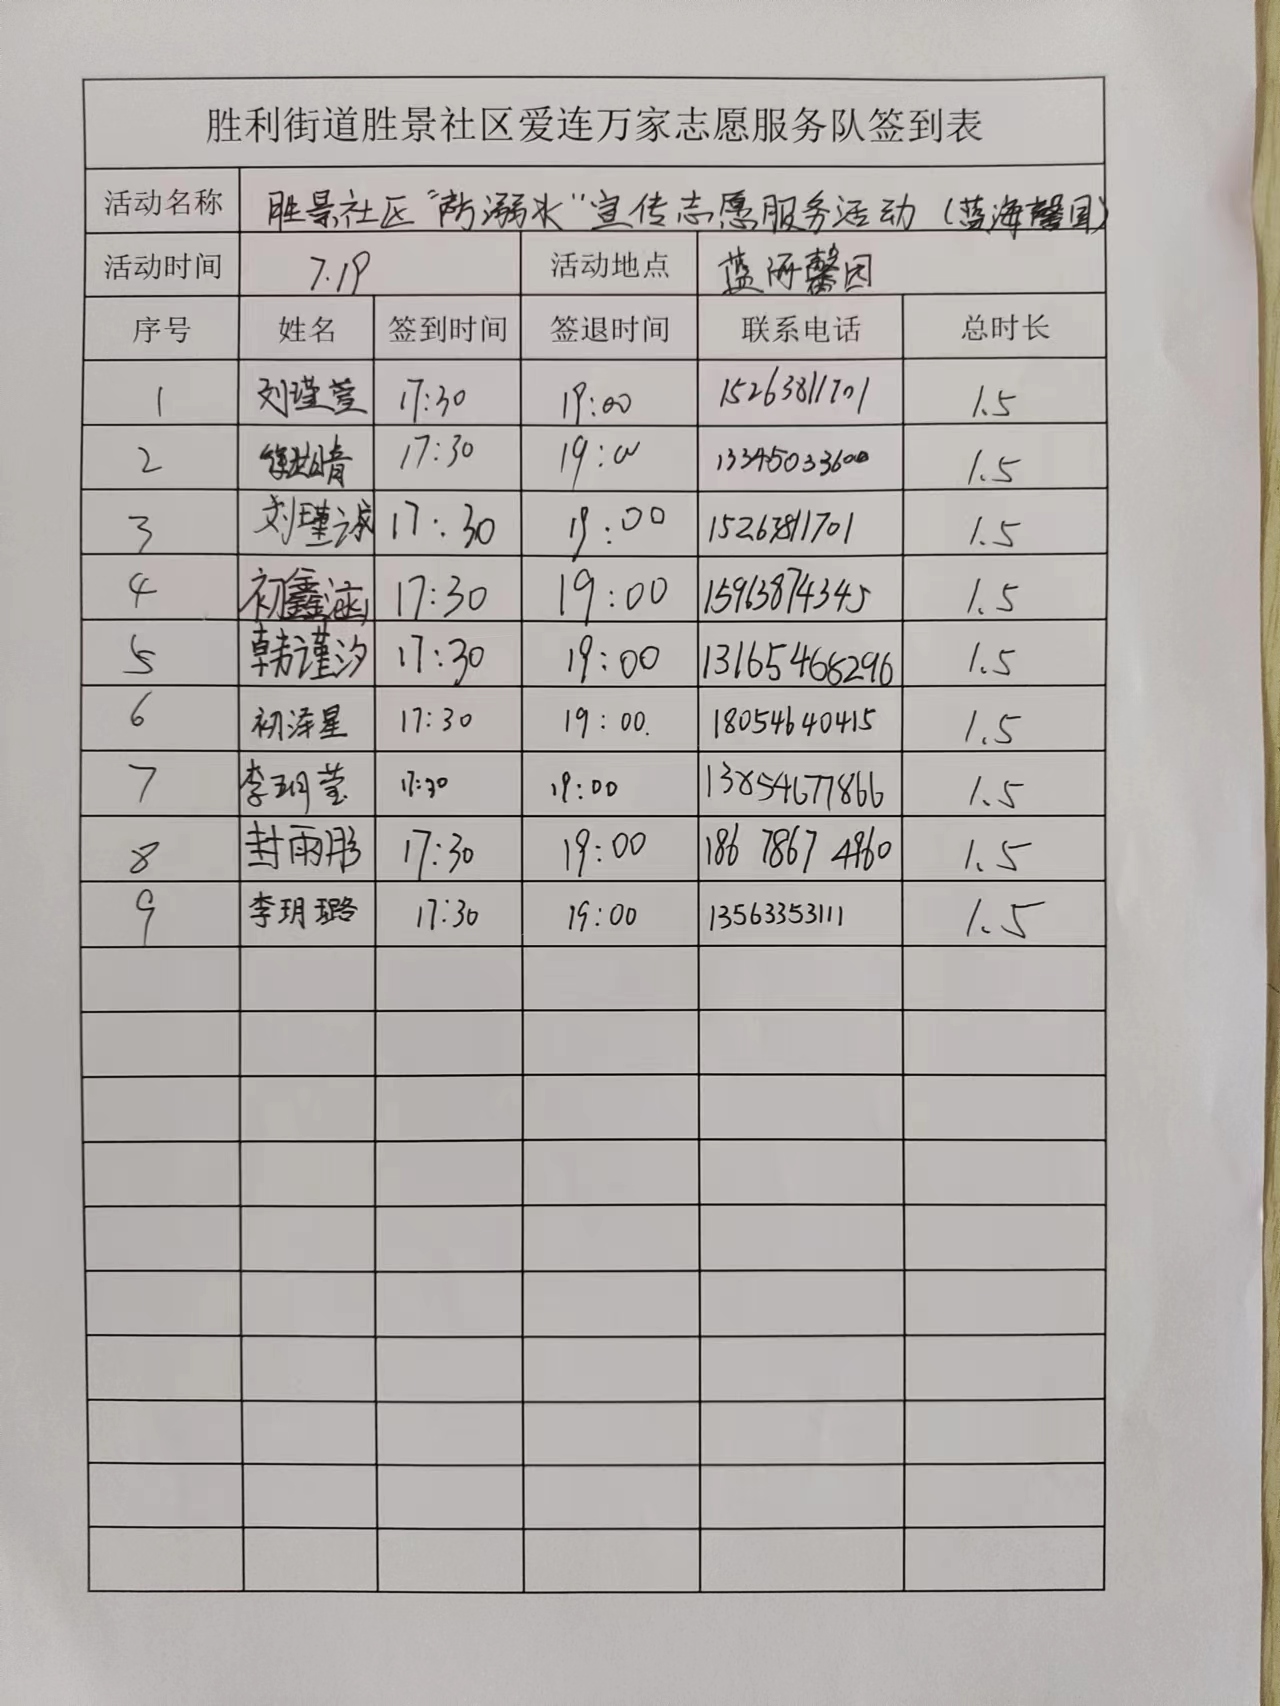 胜利街道胜景社区爱连万家志愿服务队签到表
活动名称 胜景社区“防溺水”宣传志愿服务活动（蓝海馨园）
活动时间 7.19 活动地点 蓝海馨园
序号 姓名 签到时间 签退时间 联系电话 总时长
1 刘瑾萱 17:30 19:00 15263811701 1.5
2 17:30 19:00 13345033600 1.5
3 刘瑾诚 17:30 19:00 15263811701 1.5
4 初鑫涵 17:30 19:00 15963874345 1.5
5 韩谨汐 17:30 19:00 13165466296 1.5
6 初泽星 17:30 19:00. 18054640415 1.5
7 李玥莹 17:30 19:00 13854677866 1.5
8 封雨彤 17:30 19:00 186 7867 4960 1.5
9 李玥璐 17:30 19:00 13563353111 1.5